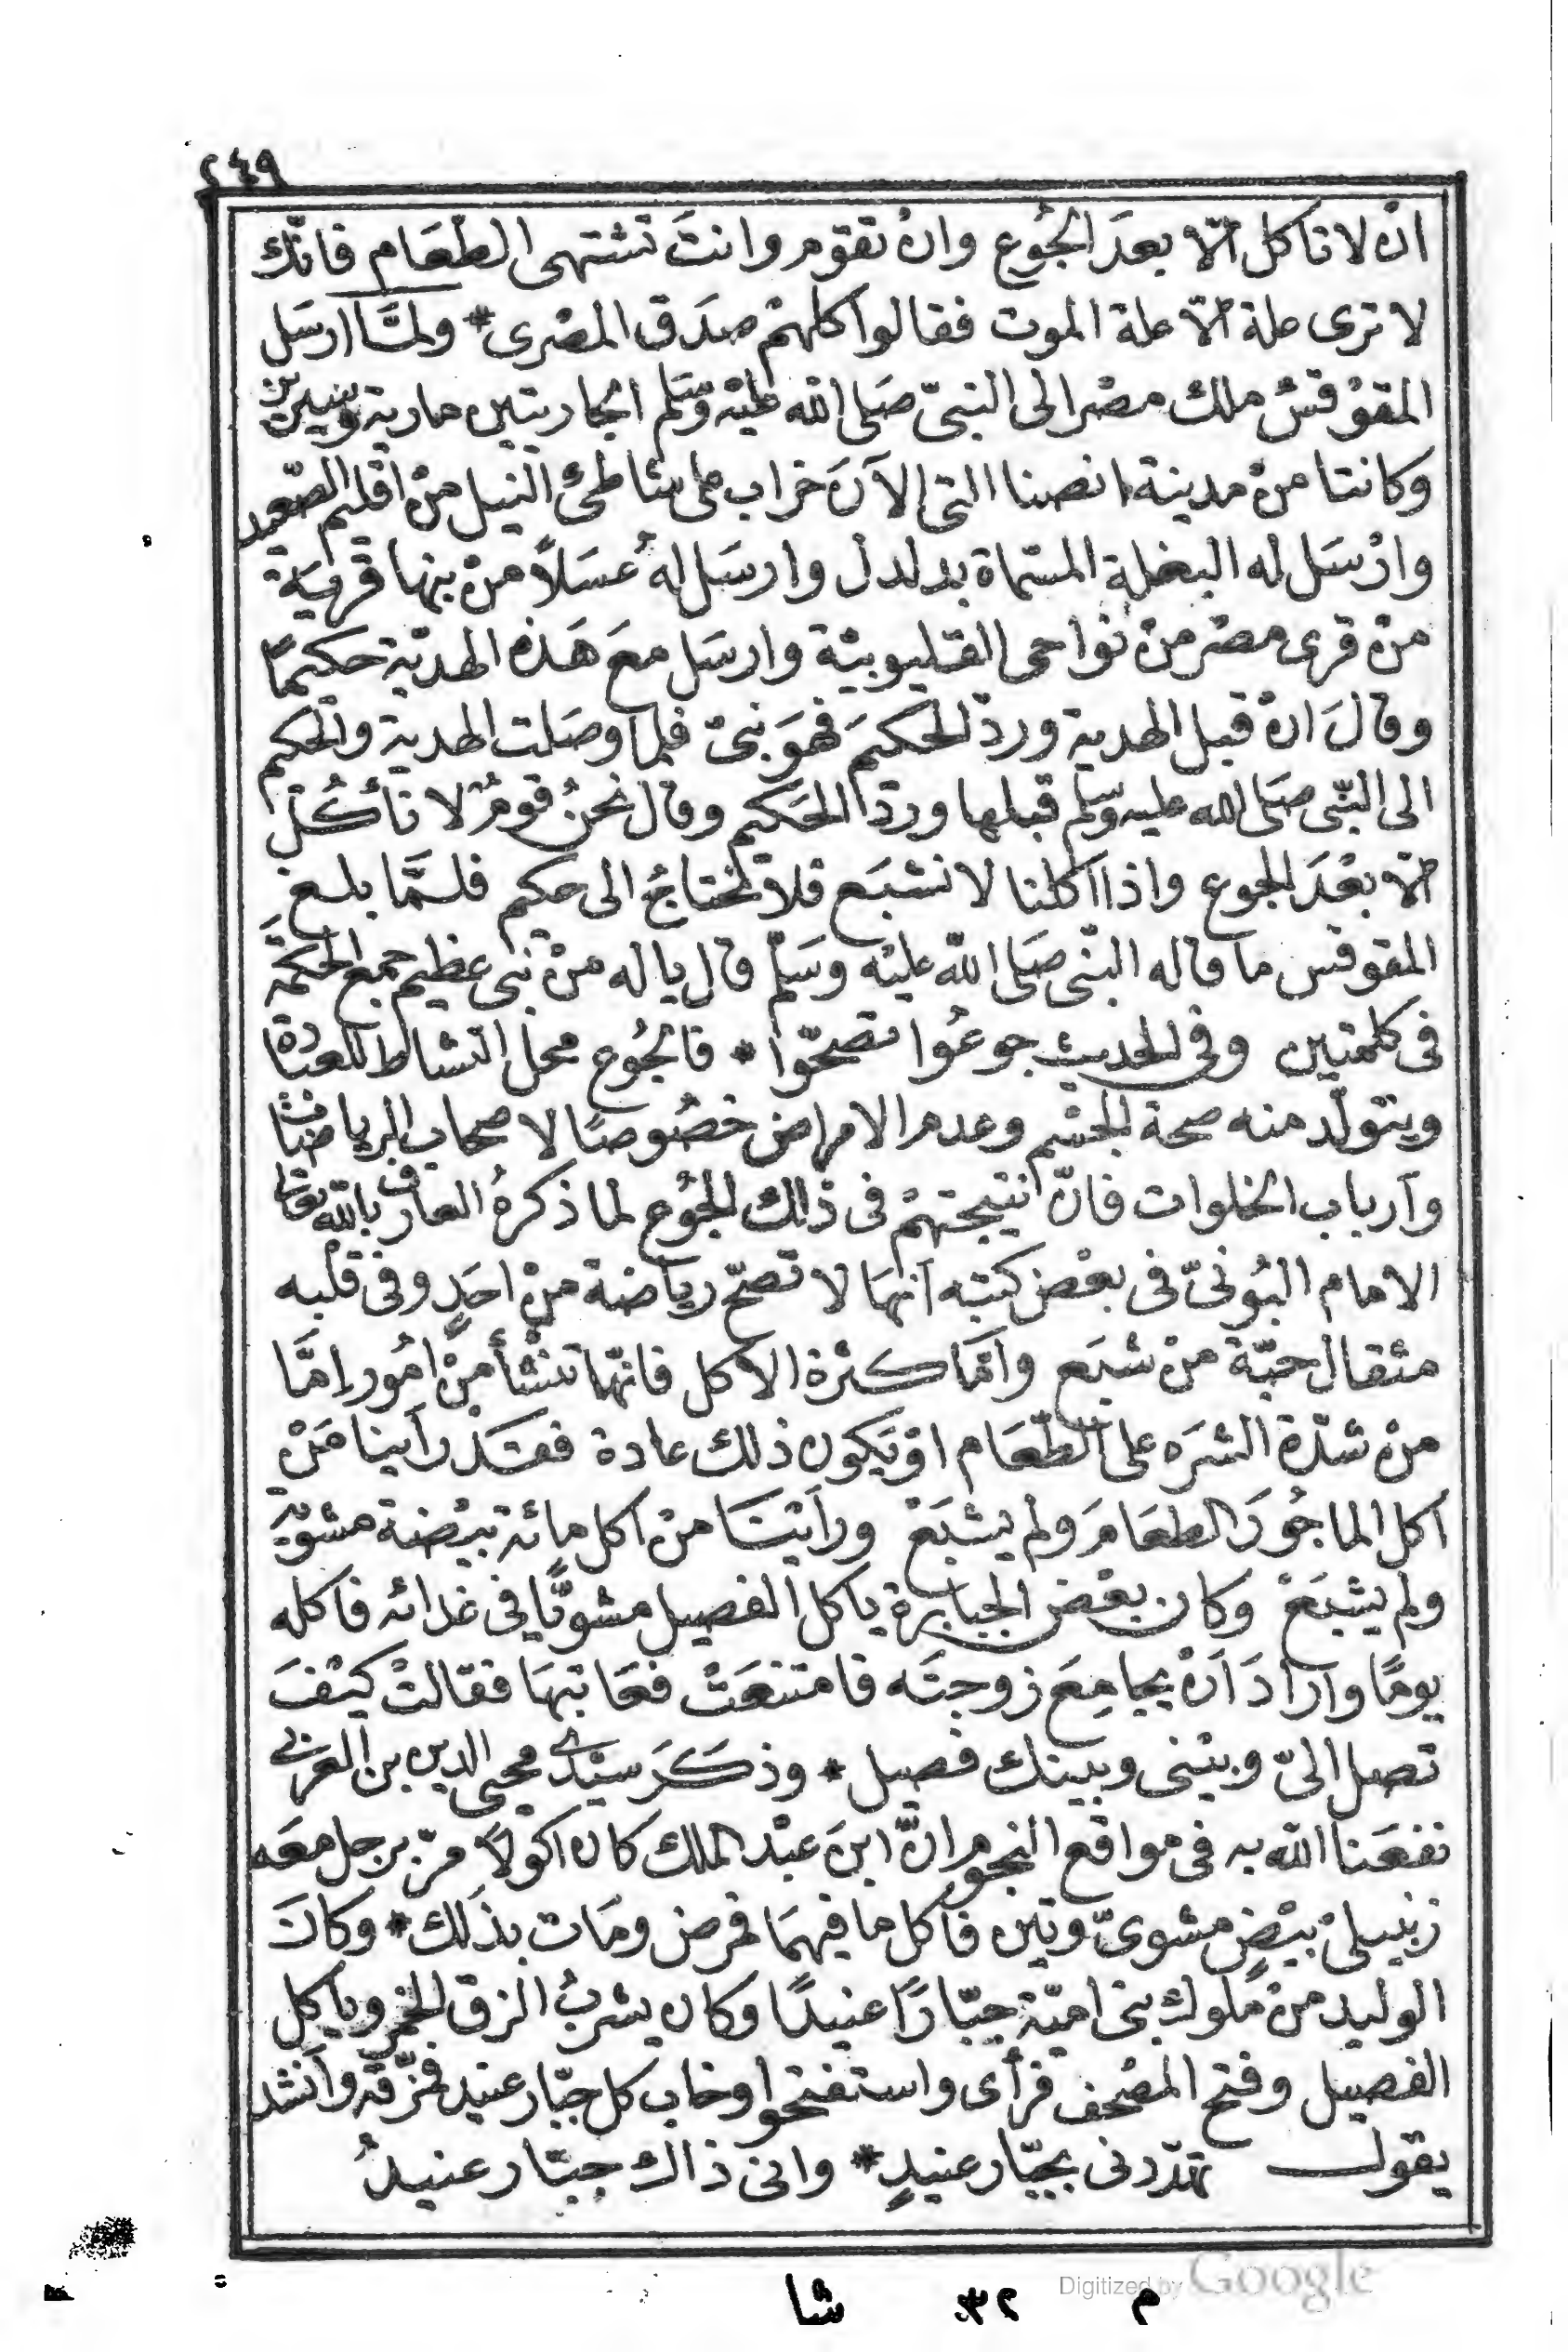 ٢٤٩
ان لا تاكل الّا بعدَ الجُوع وانْ تقوم وانتَ تشتهى الطعَام فانّك
لا ترى علة الّا علة الموت فقالوا كلهمْ صدَق المصْرى * ولمَّا ارسَل
المقوْقسْ ملك مصْر الى النبىّ صَلى الله عليْه وسَلم الجاريتين مارية وسيرين
وكانتا منْ مدينة انصنا التى الآنَ خراب على شاطئ النيل منْ اقليم الصّعيد
وارْسَل له البغلة المسّماة بدلدل وارسَل لهُ عسَلاً منْ بنها قريَة
منْ قرى مصْر منْ نواحى القليوبيّة وارسَل معَ هَذه الهديّة حكيمًا
وقالَ انْ قبل الهدية وردّ الحكيمَ فهوَ نبىّ فلما وصَلت الهدية والحكيم
الى النبّى صَلى الله عليه وسلم قبلها وردّ الحَكيم وقال نحنُ قومٌ لا نأكُلْ
الّا بعْدَ الجوع واذا اكلنا لا نشبَع فلا نحتاجُ الى حكيم فلمَّا بلغ
المقوقس ما قاله النبّى صَلى الله عليْه وسَلّم قال ياله منْ نبى عظيم جمع الحكمَة
فى كلمتين وفى الحديث جوعُوا تصحّوا * فالجُوع محل النشاط للعبادة
ويتولّد منه صحة الجسْم وعدم الامراض خصُوصًا لاصحاب الرياضات
وآرباب الخلوات فانّ نتيجتهمْ فى ذلك الجُوع لما ذكرهُ العارف بالله تعالى
الامام البُونىّ فى بعْض كتبه آنهَا لا تصحّ رياضة منْ احَدٍ وفى قلبه
مثقال حبّة منْ شبَع وامَّا كثرة الاكل فانّها تنْشأ منْ امُور اِمَّا
منْ شدّة الشرَه على الطّعَام اوْ يَكون ذلك عادة فقَدْ رآينا مَنْ
اكل الماجُورَ الطعَامَ ولم يشبَعْ ورآيْنَا منْ اكل مائة بيْضة مشوية
ولم يشبَعْ وكان بعْض الجبابرة ياكل الفصيل مشويًّا فى غدائه فاكله
يومًا وآرادَ آنْ يجامِعَ زوجتَه فامتنعَتْ فعَاتبهَا فقالتْ كيْفَ
تصل الىّ وبيْنى وبينك فصيل * وذكَرَ سيّدى محيى الدين بن العربى
نفعَنا الله به فى مواقع النجوم انَّ ابنَ عبْد الملك كان اكولاً مرّ برجل معَه
زنبيلىْ بيْضٍ مشوىّ وتين فآكل ما فيهمَا فمرض ومَات بذَلك * وكانَ
الوليد منْ ملوك بنى اميّة جبّارًا عنيدًا وكان يشربُ الزق الخمر وياكل
الفصيل وفتح المصْحف فرأى واستفتحوا وخاب كل جبّار عنيد فمزّقه وآنشد
يقول تهدّدنى بجبّار عنيدٍ * وانى ذاك جبّار عنيدُ
م ٣٢ شا
Digitized by Google